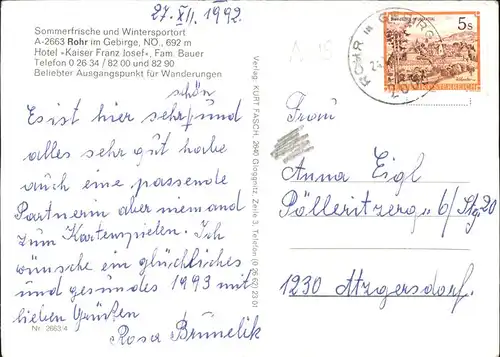 27. XII. 1992.
Sommerfrische und Wintersportort
A-2663 Rohr im Gebirge, NÖ., 692 m
Hotel »Kaiser Franz Josef«, Fam. Bauer
Telefon 0 26 34 / 82 00 und 82 90
Beliebter Ausgangspunkt für Wanderungen
schön
Es ist hier sehr und
alles sehr gut habe
auch eine passende
Partnerin aber niemand
zum Kartenspielen. Ich
wünsche ein glückliches
und gesundes 1993 mit
lieben Grüßen
Rosa Brünelik
Nr. 2663/4
Verlag KURT FASCH, 2640 Gloggnitz, Zeile 3, Telefon (0 26 62) 23 01
A 15
ROHR IM
5s
Frau
Anna Eigl
Pölleritzerg. 6/Stg 20
1230 Atzgersdorf.